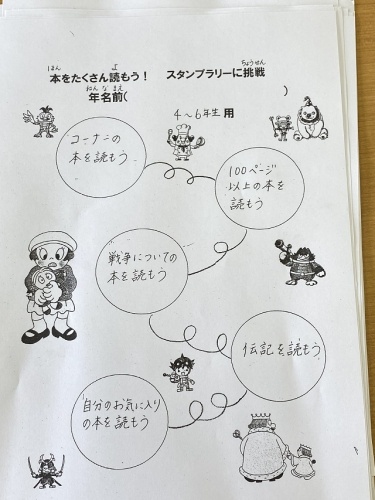 本をたくさん読もう！ スタンプラリーに挑戦
年名前（ ）
4～6年生用
コーナーの
本を読もう
100ページ
以上の本を
読もう
戦争についての
本を読もう
伝記を読もう
自分のお気に入り
の本を読もう